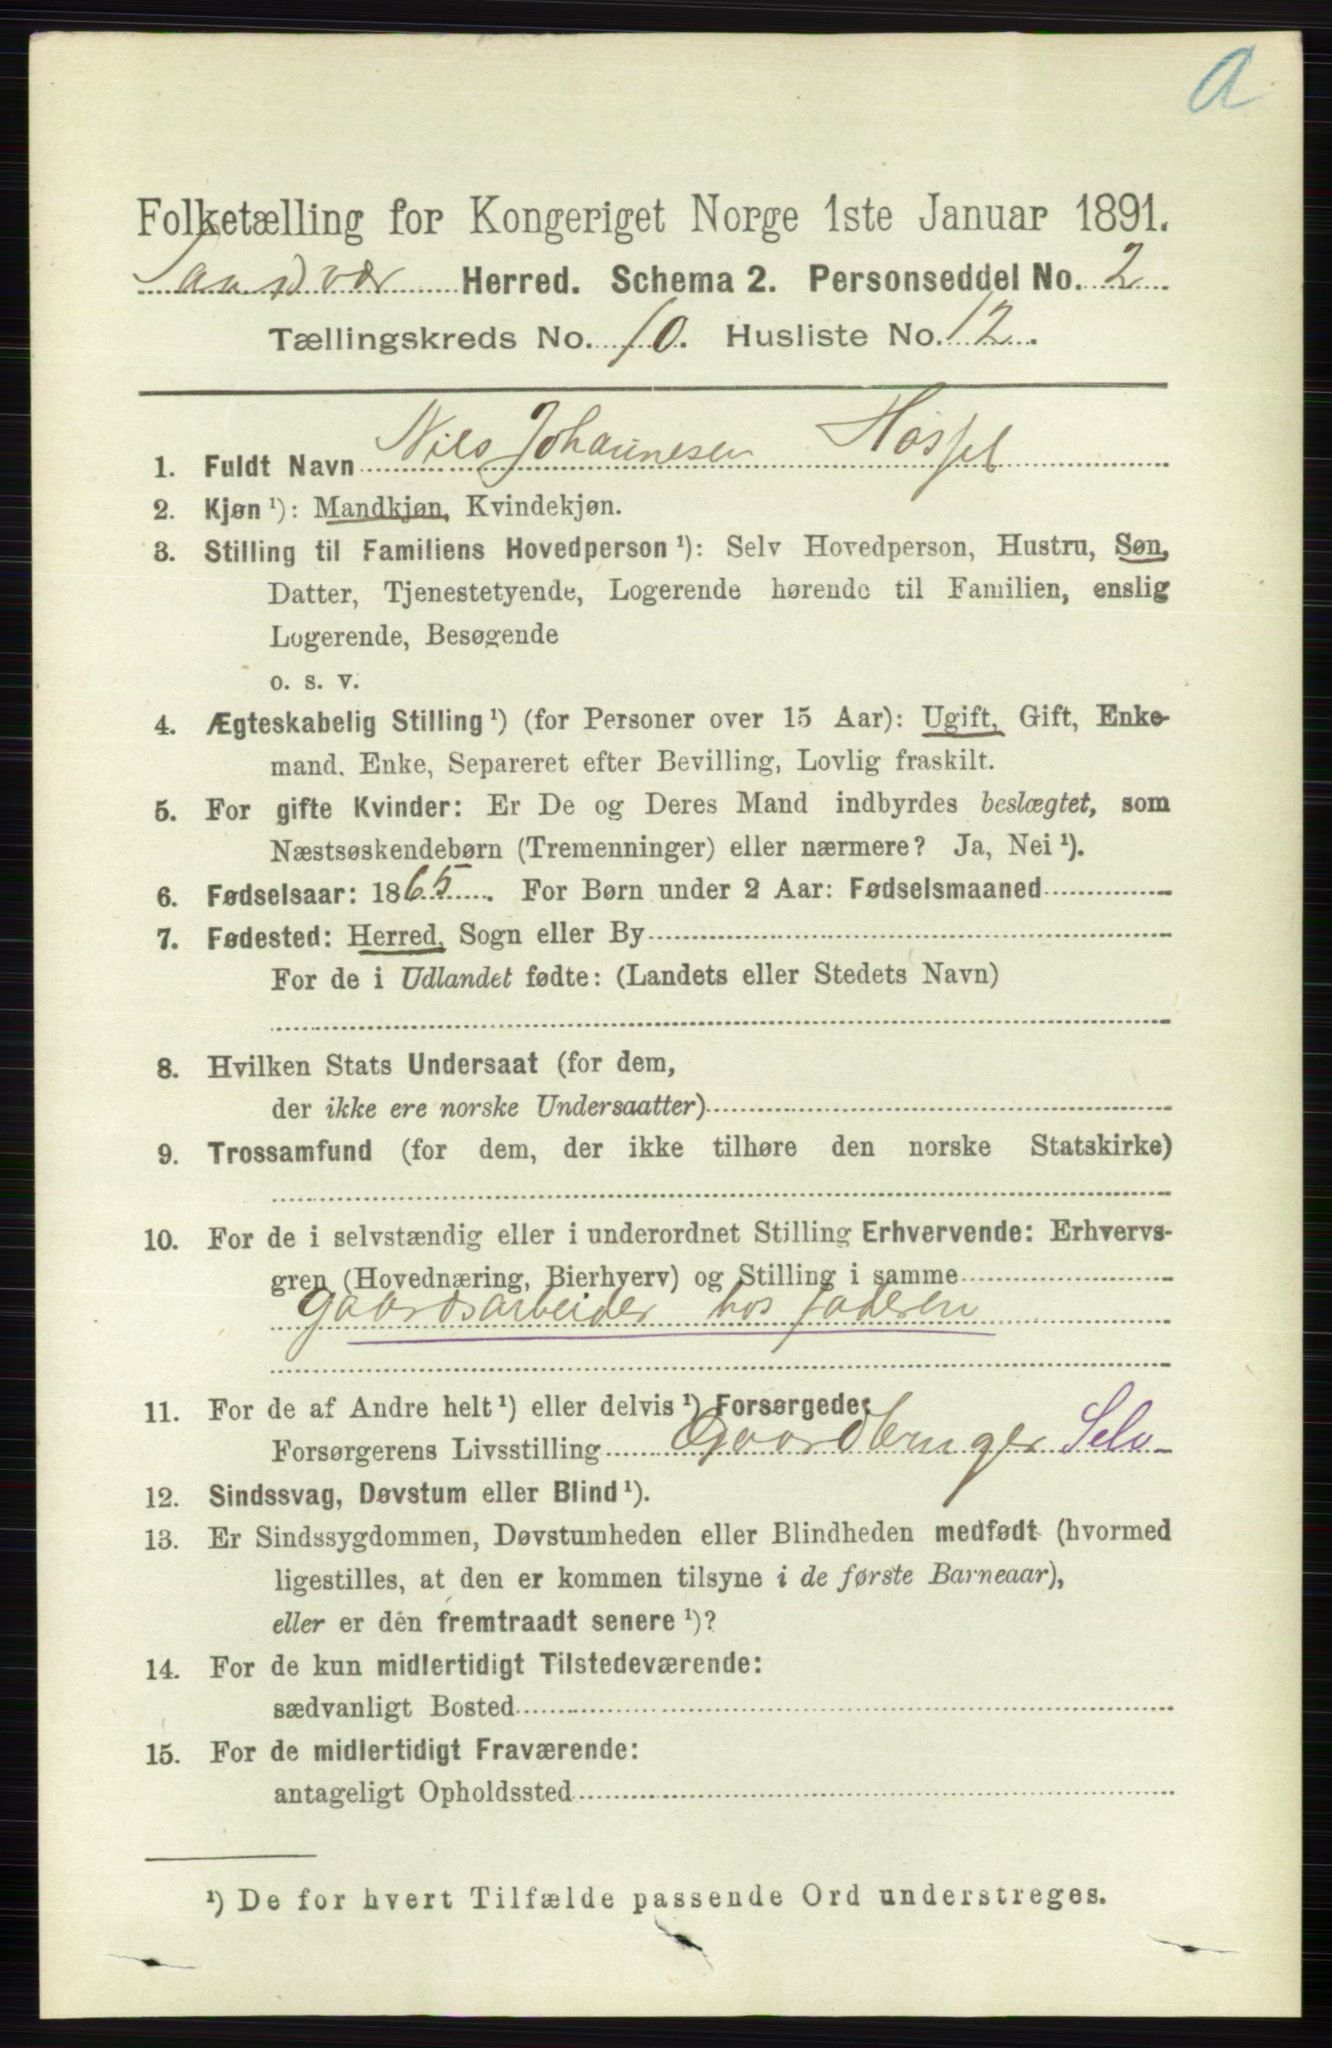 a
Folketælling for Kongeriget Norge 1ste Januar 1891.
Sandsvær Herred. Schema 2. Personseddel No. 2
Tællingskreds No. 10. Husliste No. 12.
1. Fuldt Navn Nils Johannesen Hassel
2. Kjøn ¹): Mandkjøn, Kvindekjøn.
3. Stilling til Familiens Hovedperson ¹): Selv Hovedperson, Hustru, Søn,
Datter, Tjenestetyende, Logerende hørende til Familien, enslig
Logerende, Besøgende
o. s. v.
4. Ægteskabelig Stilling ¹) (for Personer over 15 Aar): Ugift, Gift, Enke-
mand. Enke, Separeret efter Bevilling, Lovlig fraskilt.
5. For gifte Kvinder: Er De og Deres Mand indbyrdes beslægtet, som
Næstsøskendebørn (Tremenninger) eller nærmere? Ja, Nei ¹).
6. Fødselsaar: 1865. For Børn under 2 Aar: Fødselsmaaned
7. Fødested: Herred, Sogn eller By
For de i Udlandet fødte: (Landets eller Stedets Navn)
8. Hvilken Stats Undersaat (for dem,
der ikke ere norske Undersaatter)
9. Trossamfund (for dem, der ikke tilhøre den norske Statskirke)
10. For de i selvstændig eller i underordnet Stilling Erhvervende: Erhvervs-
gren (Hovednæring, Bierhverv) og Stilling i samme
Gaardsarbeider hos faderen
11. For de af Andre helt ¹) eller delvis ¹) Forsørgede:
Forsørgerens Livsstilling Gaardbruger Selv
12. Sindssvag, Døvstum eller Blind ¹).
13. Er Sindssygdommen, Døvstumheden eller Blindheden medfødt (hvormed
ligestilles, at den er kommen tilsyne i de første Barneaar),
eller er den fremtraadt senere ¹)?
14. For de kun midlertidigt Tilstedeværende:
sædvanligt Bosted
15. For de midlertidigt Fraværende:
antageligt Opholdssted
¹) De for hvert Tilfælde passende Ord understreges.